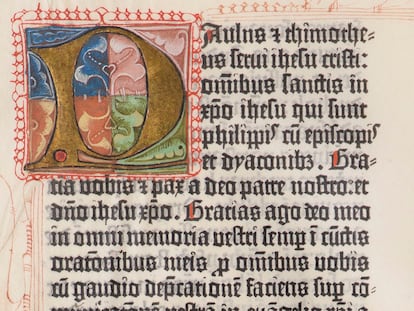 P
Aulus ⁊ thimothe-
us serui ihesu cristi:
om̄ibus sanctis in
xp̄o ihesu qui sunt
philippis cū episcopis
et dyaconibꝫ. Gra-
tia vobis ⁊ pax a deo patre nostro: et
dn̄o ihesu xp̄o. Gratias ago deo meo
in omni memoria vestri semp̄ ī cūctis
orationibus meis ꝓ om̄ibus vobis
cū gaudio dep̄cationē faciens sup̄ cō-
municatione vestra in euangelio xp̄i a